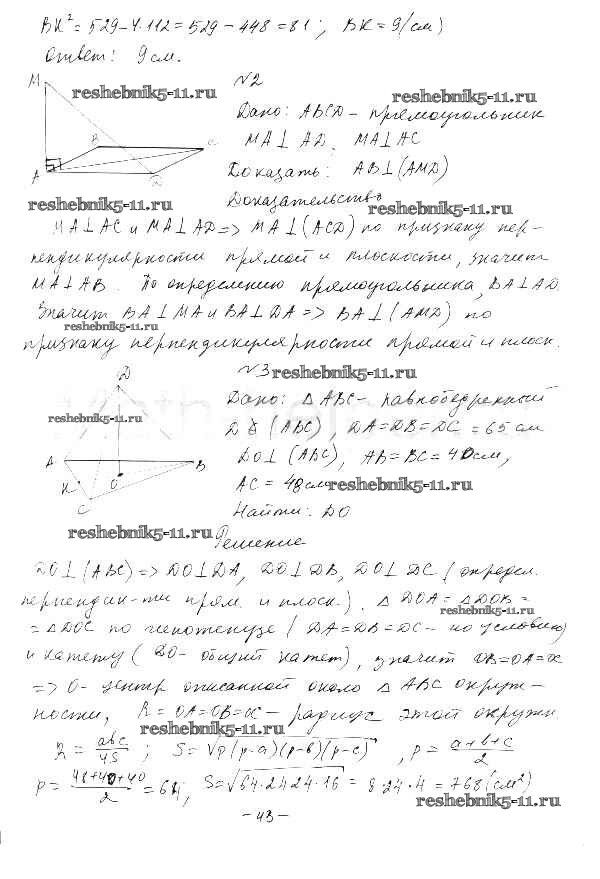 BK² = 529 − 4·112 = 529 − 448 = 81; BK = 9 (см)
Ответ: 9 см.
M
reshebnik5-11.ru
№2
reshebnik5-11.ru
Дано: ABCD – прямоугольник
B
C
MA⊥AD, MA⊥AC
A
D
Доказать: AB⊥(AMD)
reshebnik5-11.ru
Доказательство
reshebnik5-11.ru
MA⊥AC и MA⊥AD => MA⊥(ACD) по признаку пер-
пендикулярности прямой и плоскости, значит
MA⊥AB. По определению прямоугольника, BA⊥AD.
Значит BA⊥MA и BA⊥DA => BA⊥(AMD) по
reshebnik5-11.ru
признаку перпендикулярности прямой и плоск.
D
№3
reshebnik5-11.ru
Дано: △ABC – равнобедренный
reshebnik5-11.ru
(ABC), DA=DB=DC=65 см
A
B
DO⊥(ABC), AB=BC=40см,
K
O
C
AC=48см
reshebnik5-11.ru
Найти: DO
reshebnik5-11.ru
Решение
DO⊥(ABC) => DO⊥DA, DO⊥DB, DO⊥DC (определ.
перпендик-ти прям. и плоск.). △DOA=△DOB=
reshebnik5-11.ru
=△DOC по гипотенузе (DA=DB=DC – по условию)
и катету (DO – общий катет), значит OB=OA=OC
=> O – центр описанной около △ABC окруж-
ности, R=OA=OB=OC – радиус этой окружн.
reshebnik5-11.ru
R = abc/4S; S=√p(p-a)(p-b)(p-c), p = a+b+c/2
p = 48+40+40/2 = 64; S=√64·24·24·16 = 8·24·4 = 768 (см²)
reshebnik5-11.ru
– 43 –